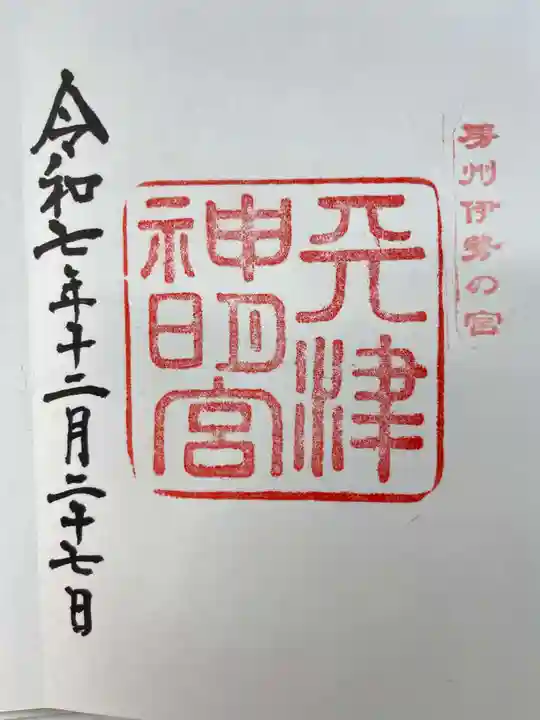 房州伊勢の宮
天津
神明宮
令和七年十二月二十七日